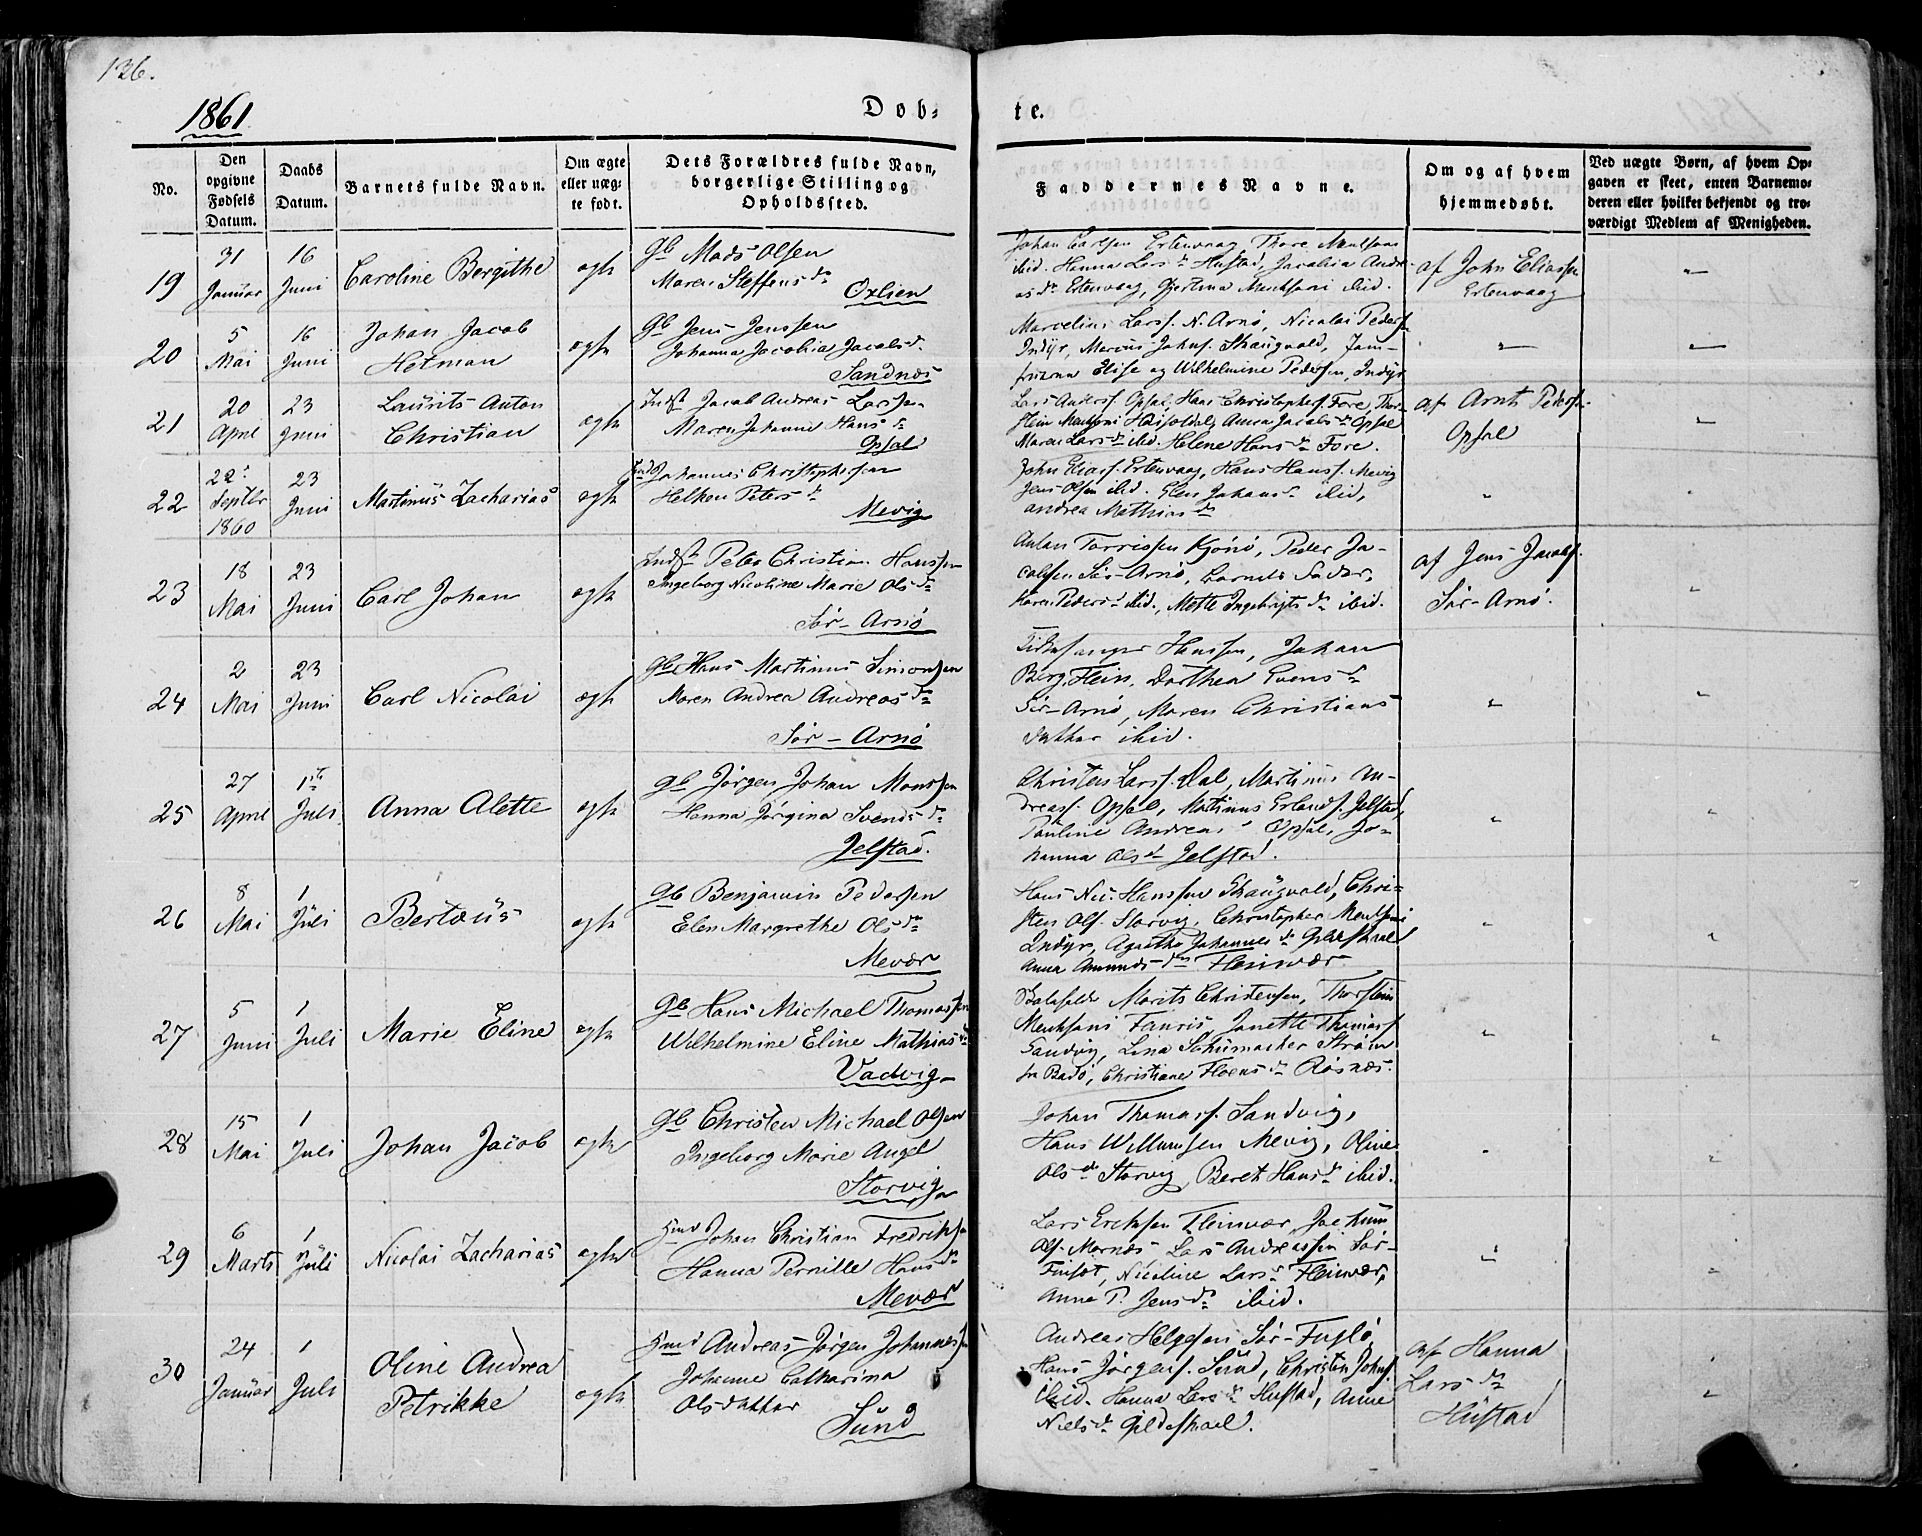 136.
1861
Døb-
te.
No.
Den opgivne Fødsels Datum.
Daabs Datum.
Barnets fulde Navn.
Om ægte eller uægte født.
Dets Forældres fulde Navn, borgerlige Stilling og Opholdssted.
Faddernes Navne.
Om og af hvem hjemmedøbt.
Ved uægte Børn, af hvem Opgaven er skeet, enten Barnemoderen eller hvilket bekjendt og troværdigt Medlem af Menigheden.
19
31 Januar
16 Juni
Caroline Bergithe
ægte
Gb Mads Olsen
Maren Steffensdr
Oxlien
Johan Carlsen Ertenvaag, Thore
ibid. Hanna Larsdr Hustad, Jacobia Andre-
asdr Ertenvaag, ibid.
af John Eliassen
Ertenvaag
20
5 Mai
16 Juni
Johan Jacob
Hetman
ægte
Gb Jens Jenssen
Johanna Jacobia Jacobsd.
Sandnes
Marcelius Larss. N. Arnø, Nicolai Peders.
Indyr, Marcus Johns. Skaugvold, Jom-
fruerna Elise og Wilhelmine Pedersen, Indyr
21
20 April
23 Juni
Laurits Anton
Christian
ægte
Indst Jacob Andreas Larssen
Maren Johanna Hansdr
Opsal
Lars Anders. Opsal, Hans Christophers. Fore, Thor-
Anna Jacobsdr Opsal
Maren Larsdr ibid. Helene Hansdr Fore.
af Arnt Peders.
Opsal
22
22 Septbr 1860
23 Juni
Martinus Zacharias
ægte
Inds Johannes Christophersen
Petersdr
Mevig
John Eliass. Ertenvaag, Hans Hanss. Mevig
Jens Olsen ibid. Elen Johansdr ibid,
Andrea Mathiasdr
23
18 Mai
23 Juni
Carl Johan
ægte
Indst Peter Christian Hanssen
Ingeborg Nicoline Marie Olsdr
Sør-Arnø
Anton Torrissen Kjønø, Peder Ja-
cobsen Sør-Arnø, Barnets Fader,
Karen Pedersd ibid., Mette Ingebrigtsdr ibid.
af Jens Jacobs.
Sør-Arnø.
24
2 Mai
23 Juni
Carl Nicolai
ægte
Gb Hans Martinus Simonsen
Maren Andrea Andreasdr
Sør-Arnø
Kirkesanger Hanssen, Johan
Berg, Hein, Dorthea Evensdr
Sør-Arnø, Maren Christians
datter ibid.
25
27 April
1ste Juli
Anna Alette
ægte
Gb Jørgen Johan Monssen
Hanna Jørgina Svendsdr
Jelstad.
Christen Larss. Dal, Martinus An-
dreass. Opsal, Martinus Erlands. Jelstad,
Pauline Andreasd Opsal, Jo-
hanna Olsd Jelstad.
26
8 Mai
1 Juli
Bertæus
ægte
Gb Benjamin Pedersen
Elen Margrethe Olsdr
Mevær
Hans Nic. Hanssen Skaugvold, Chri-
sten Ols. Storvig, Christopher
Indyr, Agathe Johannesdr Gildeskaal
Anna Amundsdr Fleinvær
27
5 Juni
1 Juli
Marie Eline
ægte
Gb Hans Michael Thomassen
Wilhelmine Eline Mathiasdr
Vadvig
Morits Christensen, Thorstein
Fauris, Janette Thomass
Sandvig, Lina Schumacher Strøm
fra Bodø, Christiane Røsnæs.
28
15 Mai
1 Juli
Johan Jacob
ægte
Gb Christen Michael Olsen
Ingeborg Marie Angel
Storvig
Johan Thomass. Sandvig,
Hans Willumsen Mevig, Oline
Olsdr Storvig, Beret Hansdr ibid.
29
6 Marts
1 Juli
Nicolai Zacharias
ægte
Johan Christian Fredriksen
Hanna Pernille Hansdr
Mevær
Lars Ericksen Fleinvær, Jochum
Ols. Mornæs, Lars Andreassen Sør-
Finset, Nicoline Larsdr Fleinvær,
Anne P. Jensdr ibid.
30
24 Januar
1 Juli
Oline Andrea
Petrikke
ægte
Andreas Jørgen Johannessen
Johanne Catharina
Olsdatter
Sund
Andreas Helgesen Sør-Fuglø,
Hans Jørgens. Sund, Christen Johns.
ibid. Hanna Larsdr Hustad, Anne
Nielsdr Gildeskaal.
af Hanna
Larsdr
Hustad